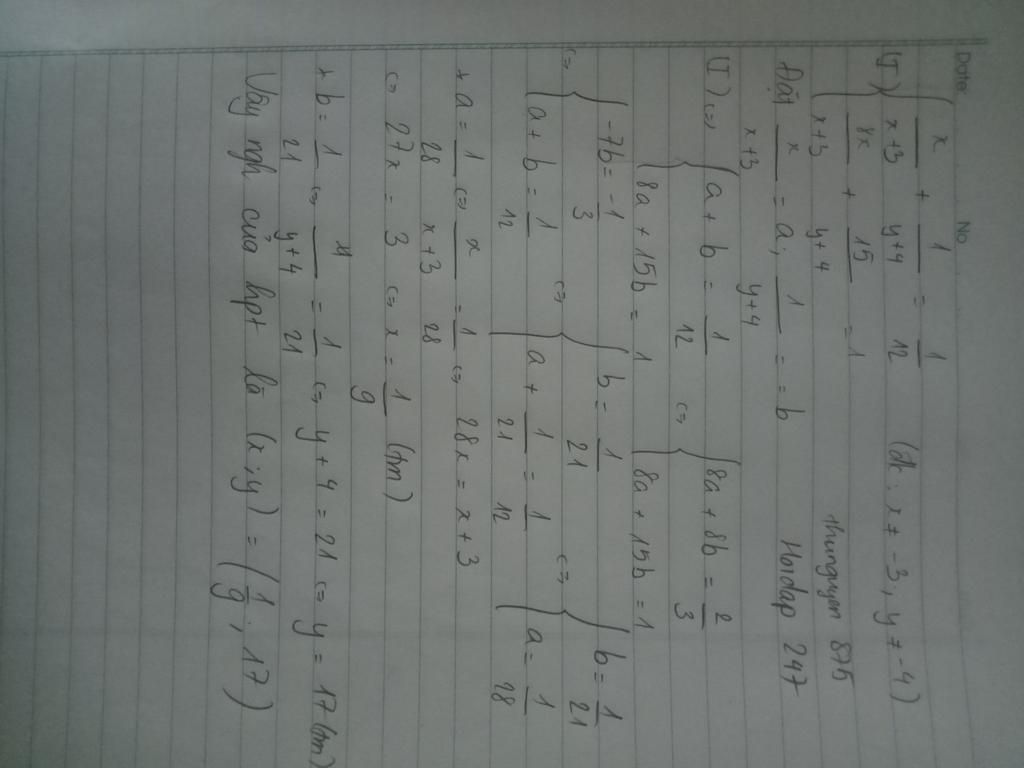 Date No
(I) { x/x+3 + 1/y+4 = 1/12 (đk: x ≠ -3, y ≠ -4)
{ 8x/x+3 + 15/y+4 = 1 thunguyen 875
Đặt x/x+3 = a, 1/y+4 = = b Hoidap 247
(I) <=> { a + b = 1/12 <=> { 8a + 8b = 2/3
{ 8a + 15b = 1 { 8a + 15b = 1
<=> { -7b = -1/3 <=> { b = 1/21 <=> { b = 1/21
{ a + b = 1/12 { a + 1/21 = 1/12 { a = 1/28
+ a = 1/28 <=> x/x+3 = 1/28 <=> 28x = x + 3
<=> 27x = 3 <=> x = 1/9 (tm)
+ b = 1/21 <=> 1/y+4 = 1/21 <=> y + 4 = 21 <=> y = 17 (tm)
Vậy ngh của hpt là (x; y) = (1/9; 17)